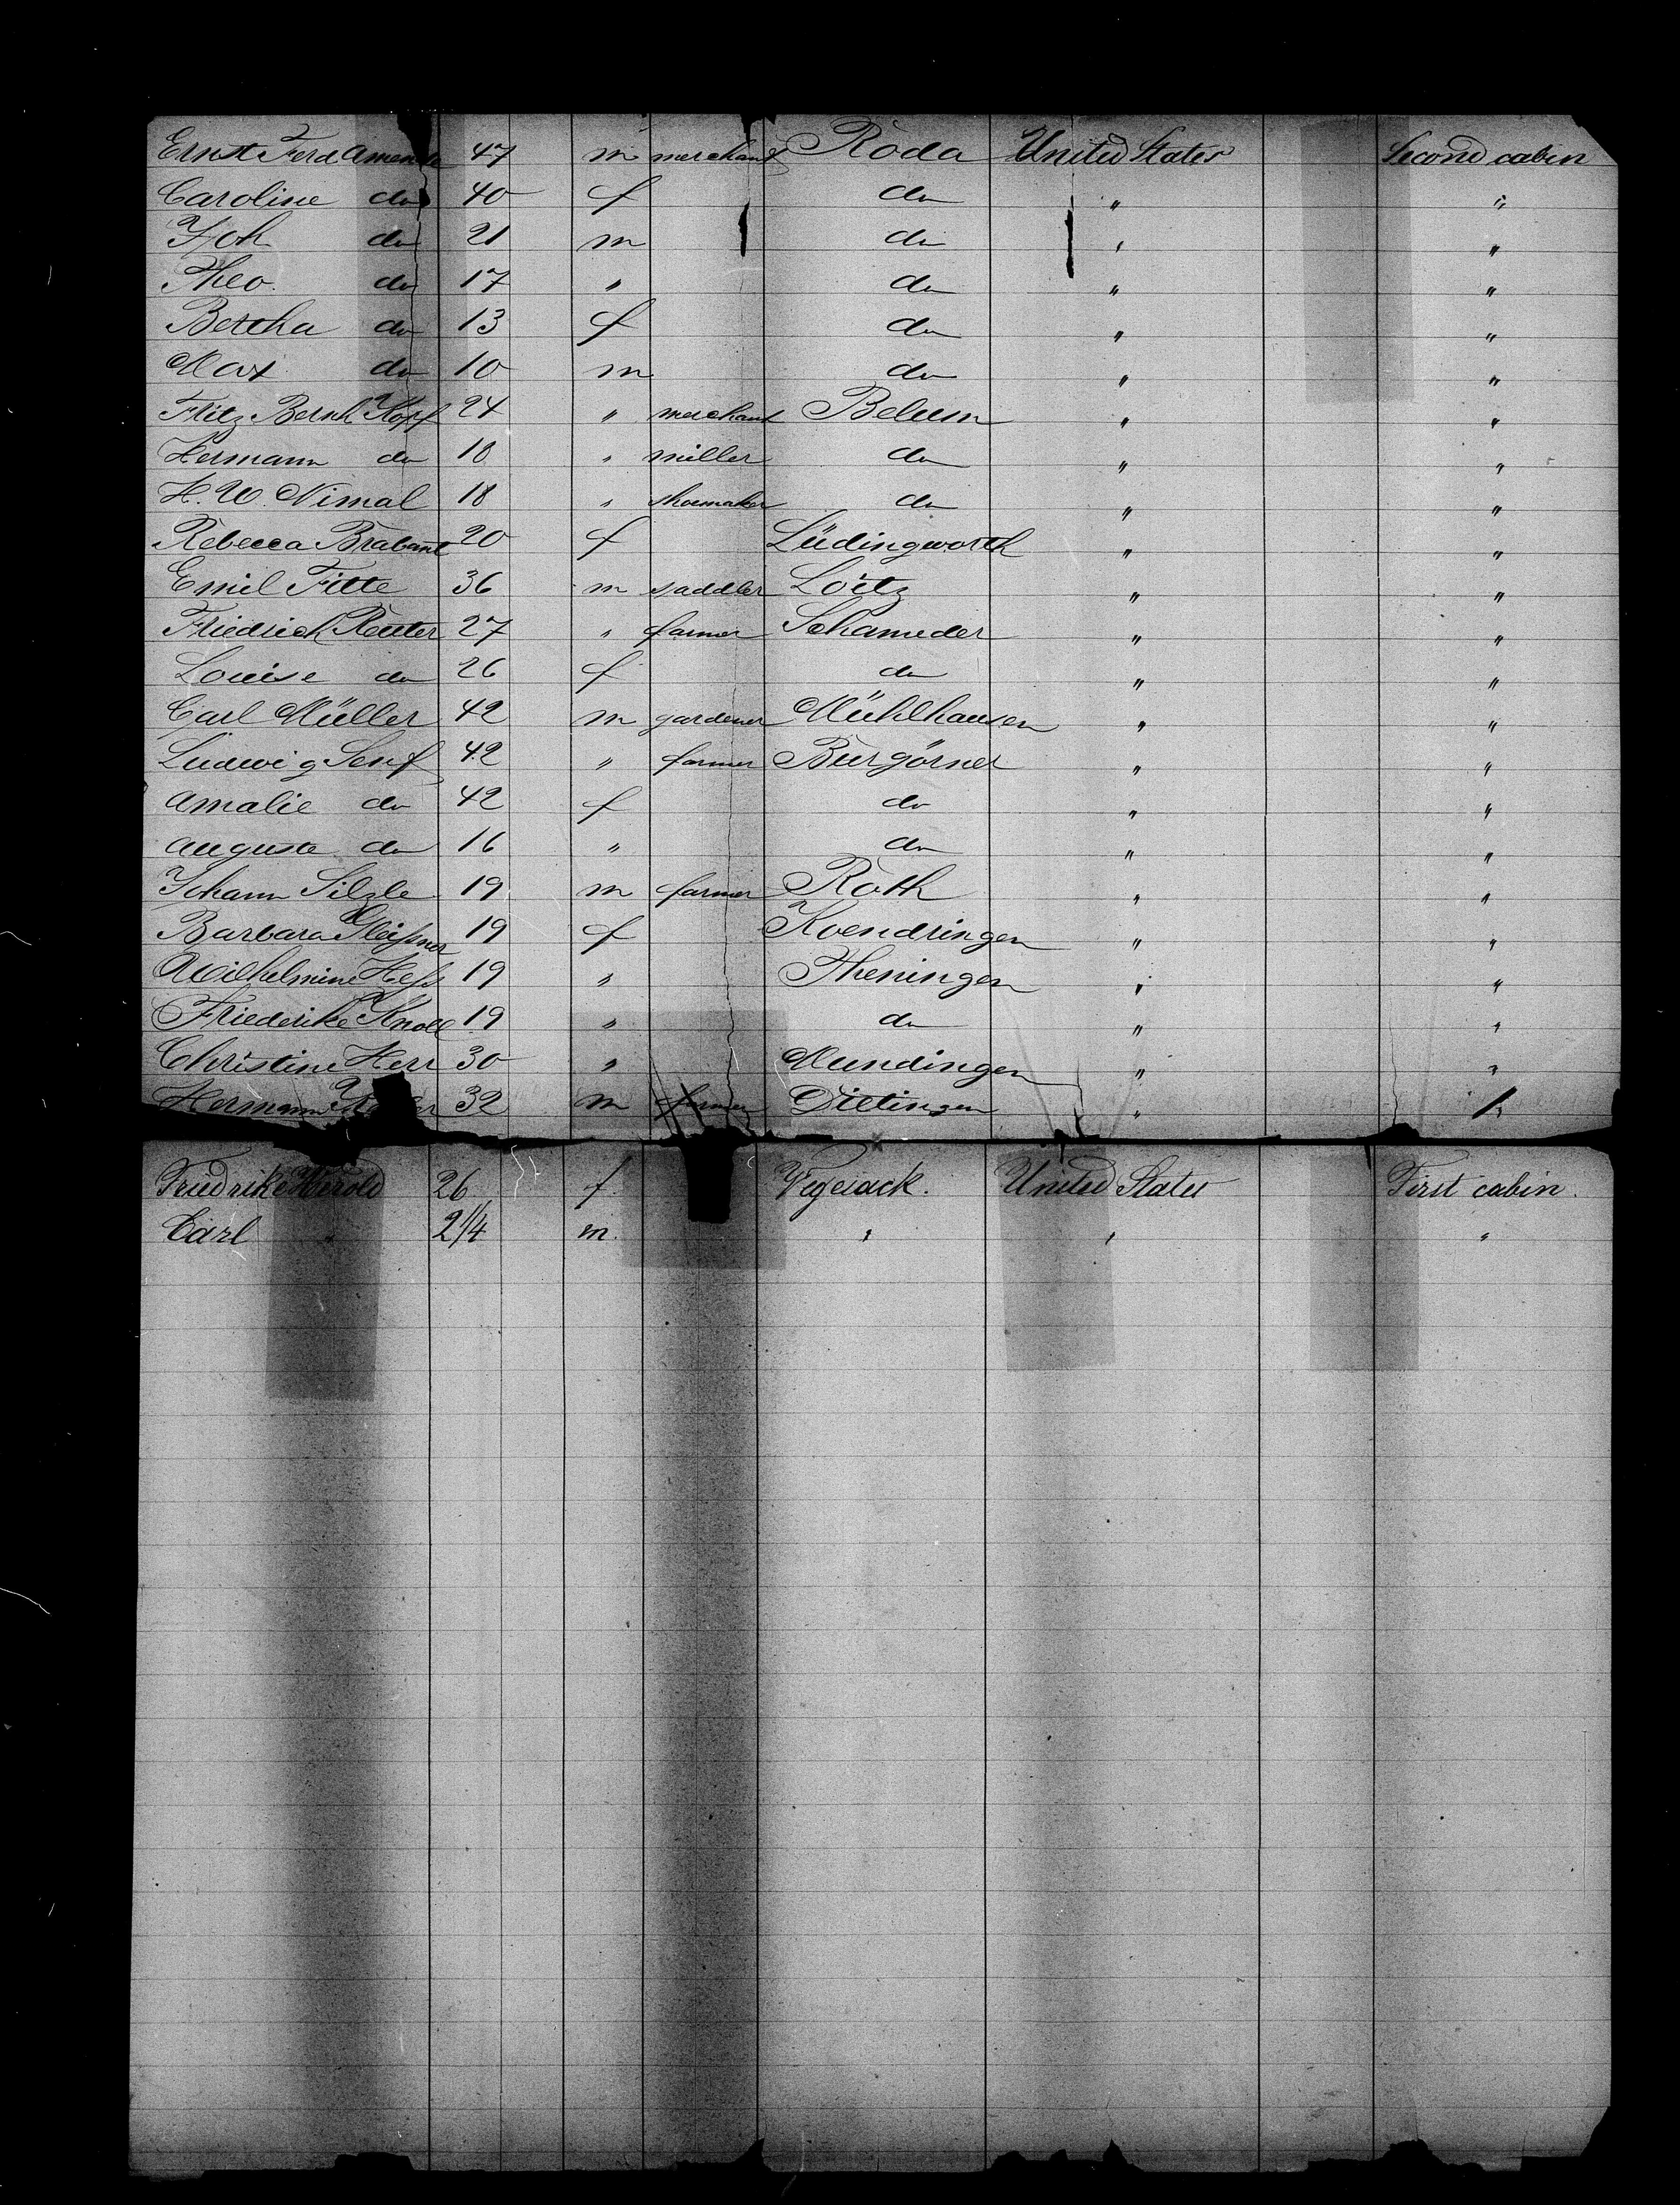 Ernst Ferd Amende 47 m merchant Roda United States Second cabin
Caroline do 40 f do " "
Joh do 21 m do " "
Theo. do 17 " do " "
Bertha do 13 f do " "
Max do 10 m do " "
Fritz Bernh Kopf 24 " merchant Belum " "
Hermann do 18 " miller do " "
H. W. Nimal 18 " shoemaker do " "
Rebecca Brabant 20 f Lüdingworth " "
Emil Fitte 36 m saddler Loitz " "
Friedrich Reuter 27 " farmer Schameder " "
Louise do 26 f do " "
Carl Müller 42 m gardener Mühlhausen " "
Ludwig Senf 42 " farmer Burgörner " "
Amalie do 42 f do " "
Auguste do 16 " do " "
Johann Silzle 19 m farmer Roth " "
Barbara Meißner 19 f Koendringen " "
Wilhelmine Heß 19 " Theningen " "
Friederike Knoll 19 " do " "
Christine Herr 30 " Mundingen " "
Hermann 32 m farmer Dietingen " "
Friedrike Herold 26 f. Vegesack. United States First cabin.
Carl " 2 1/4 m. " " "